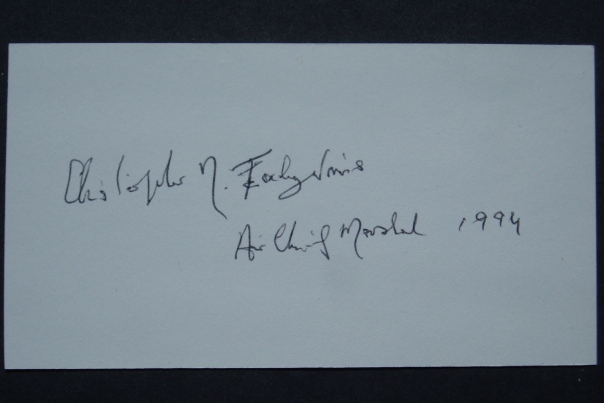 Christopher N. Foxley-Norris
Air Chief Marshal 1994